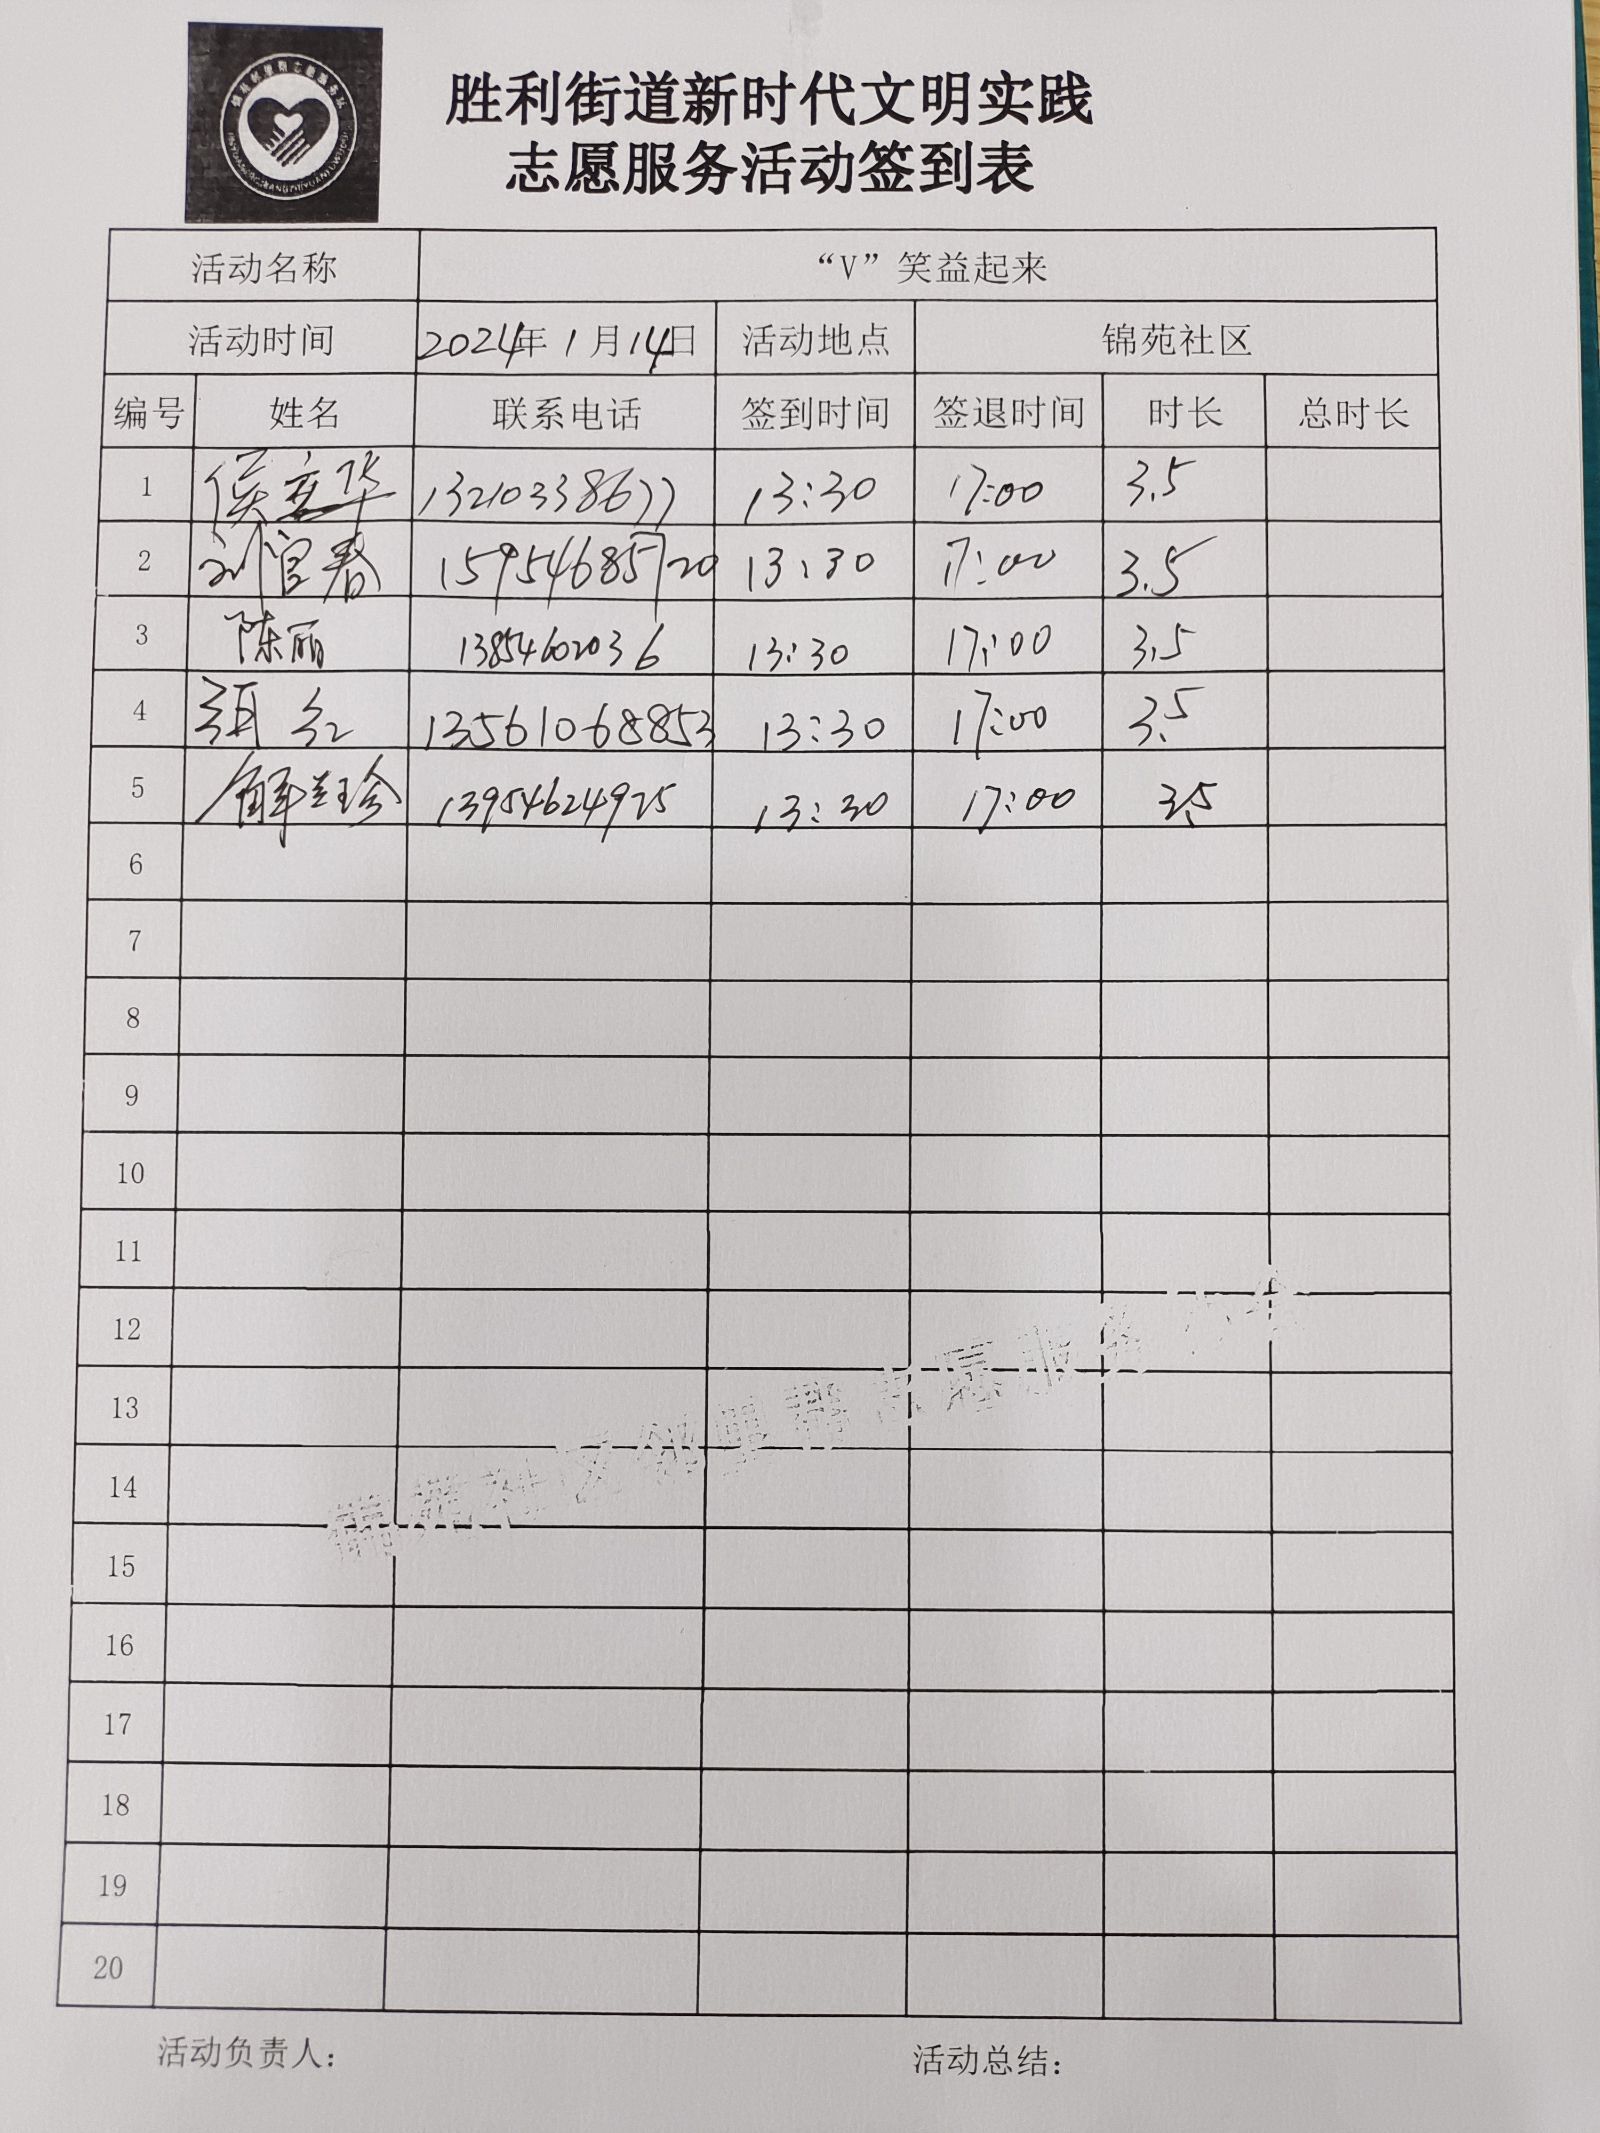 胜利街道新时代文明实践
志愿服务活动签到表
活动名称 “V”笑益起来
活动时间 2024年1月14日 活动地点 锦苑社区
编号 姓名 联系电话 签到时间 签退时间 时长 总时长
1 侯立华 13210338677 13:30 17:00 3.5
2 刘宜春 15954685720 13:30 17:00 3.5
3 陈丽 13854602036 13:30 17:00 3.5
4 红 13561068853 13:30 17:00 3.5
5 解兰珍 13954624925 13:30 17:00 3.5
6
7
8
9
10
11
12
13
14
15
16
17
18
19
20
锦苑社区邻里帮志愿服务
活动负责人： 活动总结：